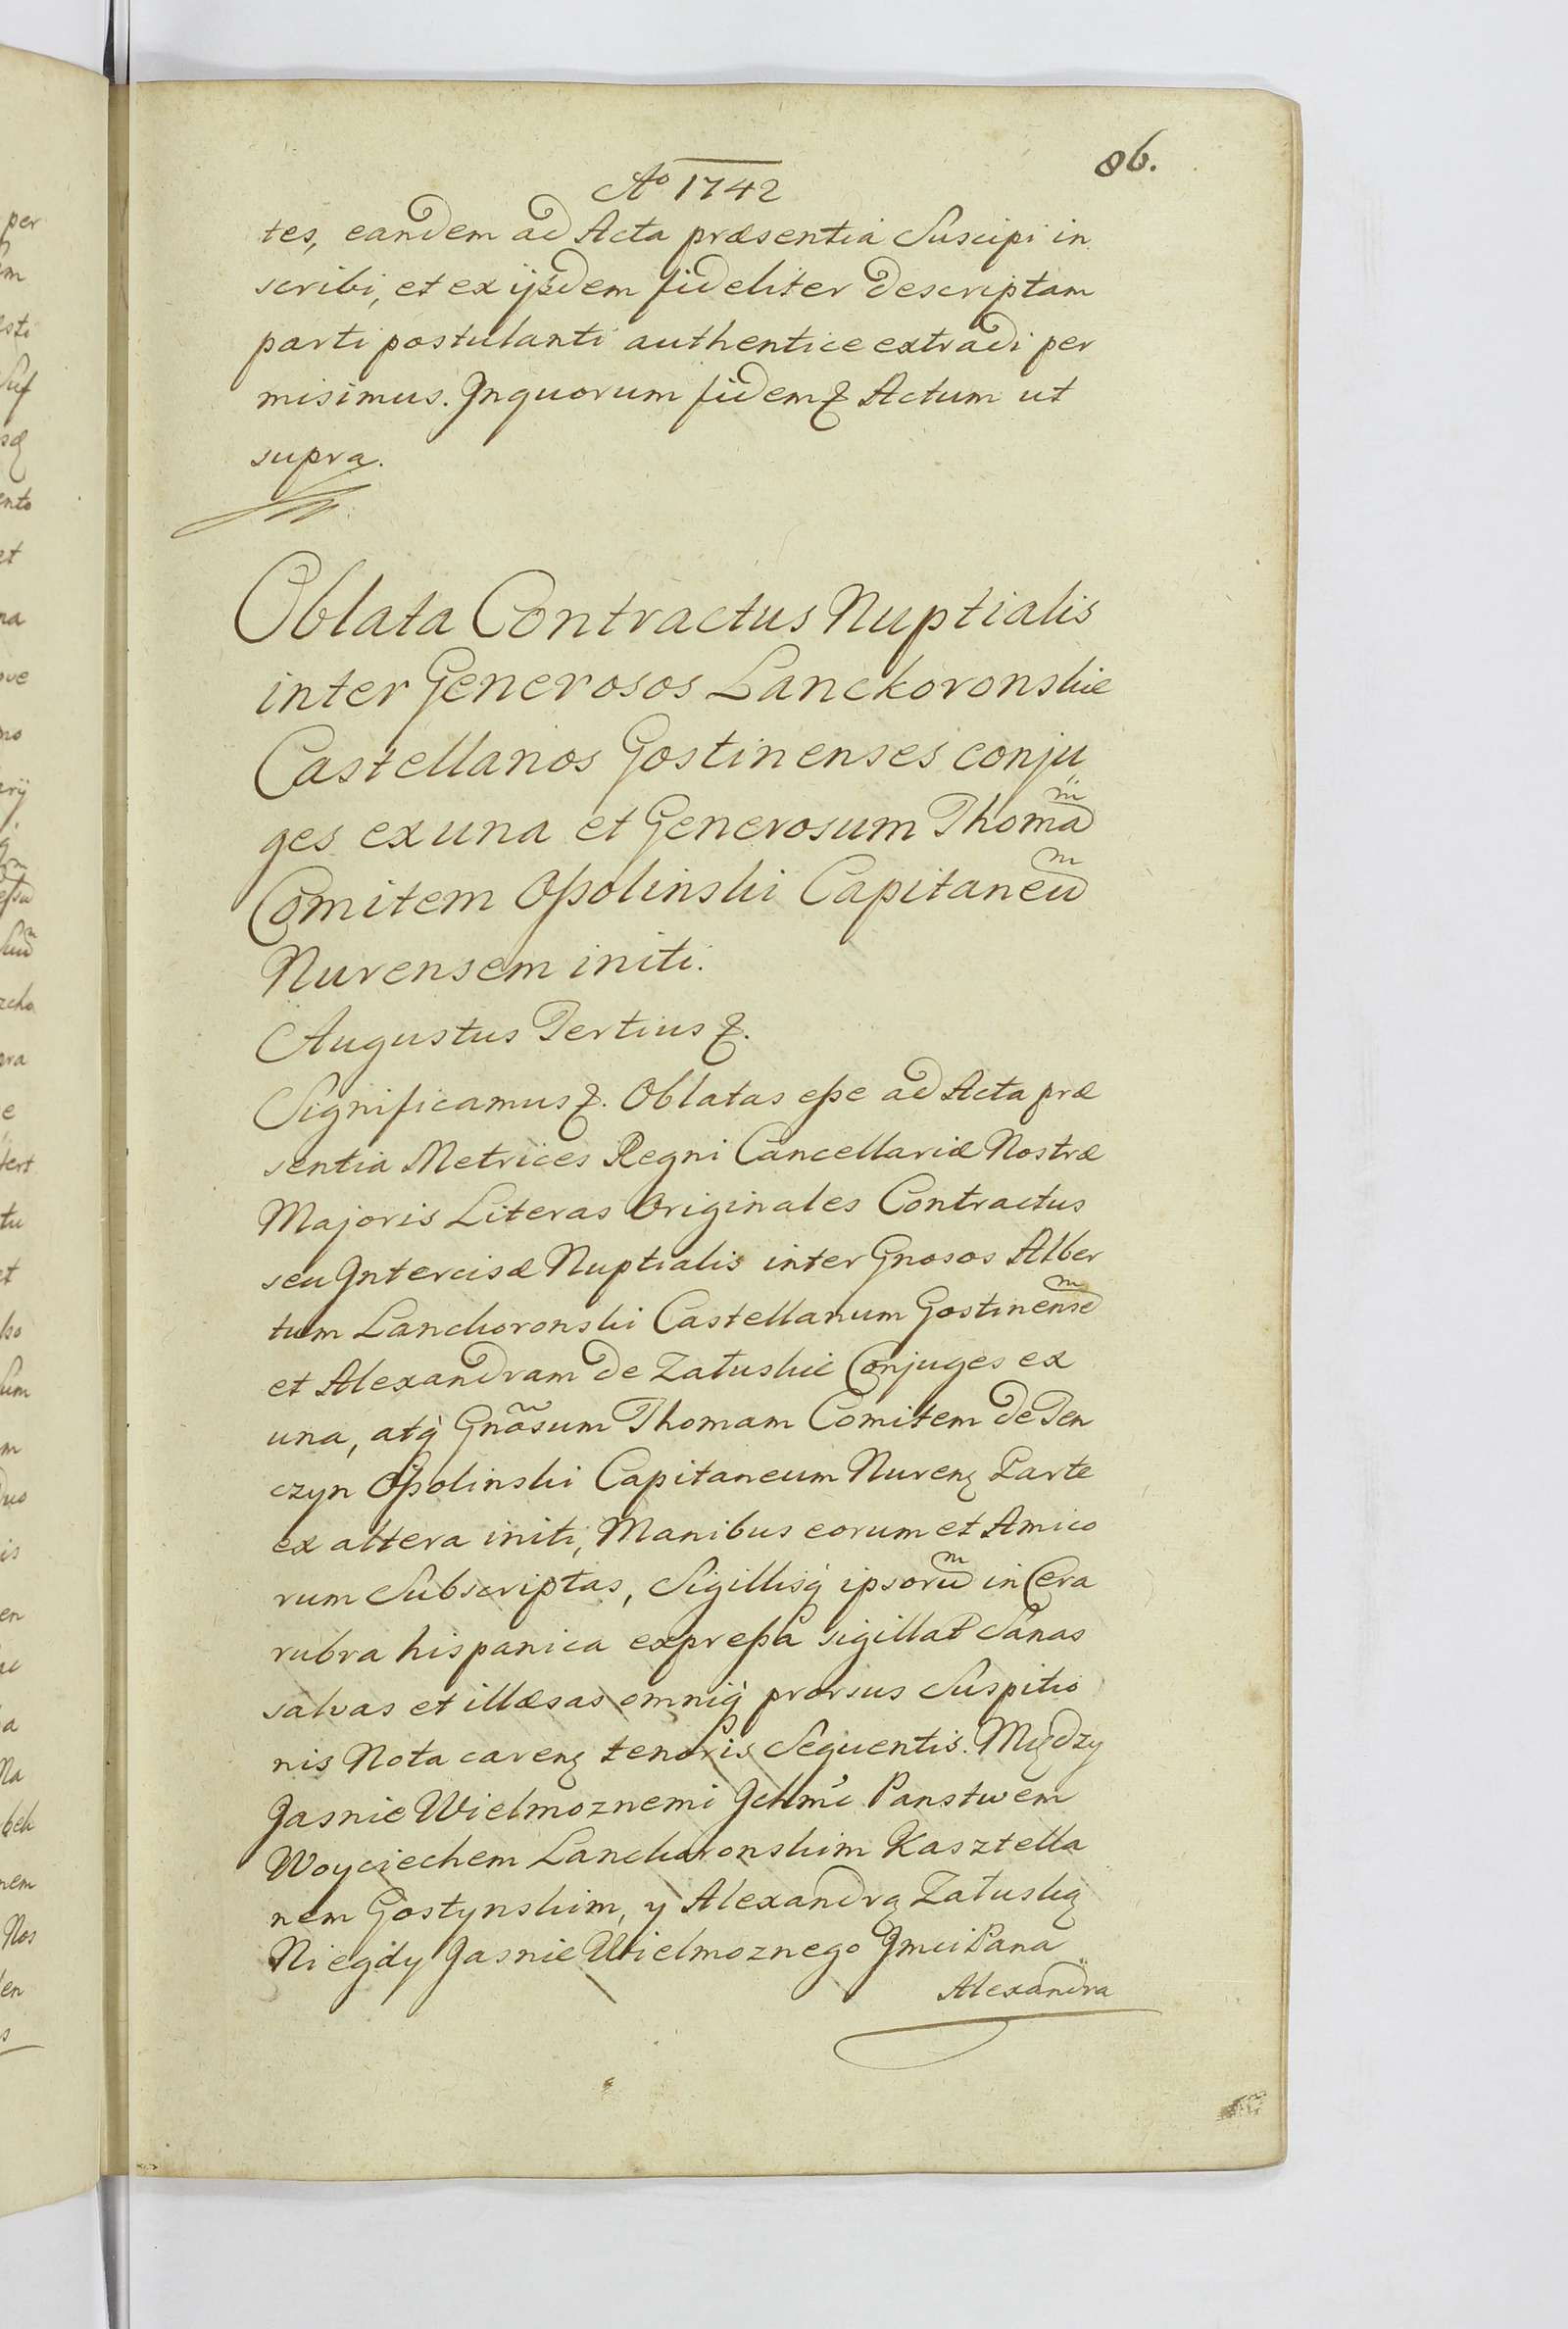 86.
Ao 1742
tes, eandem ad Acta præsentia Suscipi in
scribi, et ex ijsdem fideliter descriptam
parti postulanti authentice extradi per
misimus. Jn quorum fidem &. Actum ut
supra.
Oblata Contractus Nuptialis
inter Generosos Lanckoronskie
Castellanos Gostinenses conju
ges ex una et Generosum Thomam
Comitem Ossolinski Capitaneum
Nurensem initi.
Augustus Tertius &.
Significamus &. Oblatas esse ad Acta præ
sentia Metrices Regni Cancellariæ Nostræ
Majoris Literas Originales Contractus
seu Jntercisæ Nuptialis inter Gnosos Alber
tum Lanckoronski Castellanum Gostinensem
et Alexandram de Załuskie Conjuges ex
una, atq Gnõsum Thomam Comitem de Ten
czyn Ossolinski Capitaneum Nuren Parte
ex altera initi, Manibus eorum et Amico
rum Subscriptas, Sigillisq ipsorum in Cera
rubra hispanica expressa sigillat Sanas
salvas et illæsas omniq prorsus Suspitio
nis Nota caren tenoris Sequentis. Między
Jasnie Wielmoznemi Jchmc Panstwem
Woyciechem Lanckoronskim Kasztella
nem Gostynskim, y Alexandrą Załuską
Niegdy Jasnie Wielmoznego Jmci Pana
Alexandra